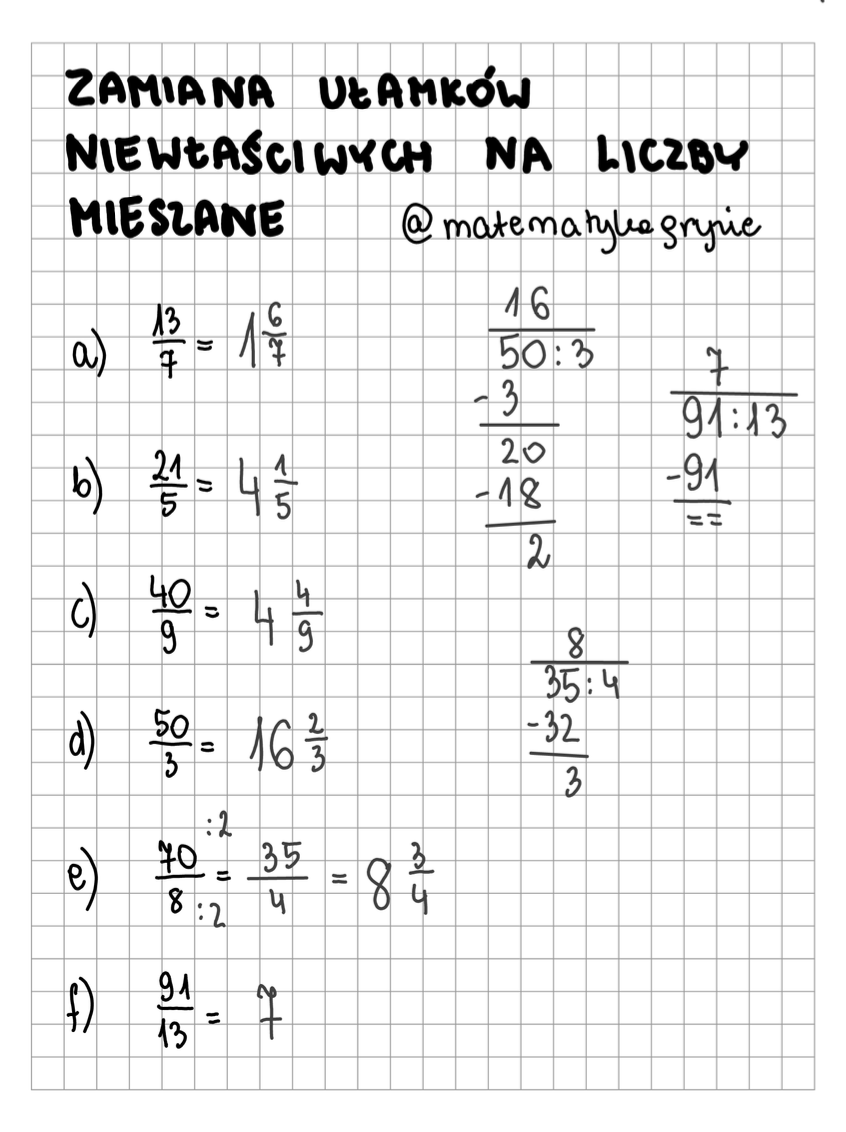 ZAMIANA UŁAMKÓW
NIEWŁAŚCIWYCH NA LICZBY
MIESZANE @matematykagrysie
a) 13/7 = 1 6/7
b) 21/5 = 4 1/5
c) 40/9 = 4 4/9
d) 50/3 = 16 2/3
e) 70/8 = 35/4 = 8 3/4
:2
:2
f) 91/13 = 7
16
50:3
-3
20
-18
2
7
91:13
-91
==
8
35:4
-32
3